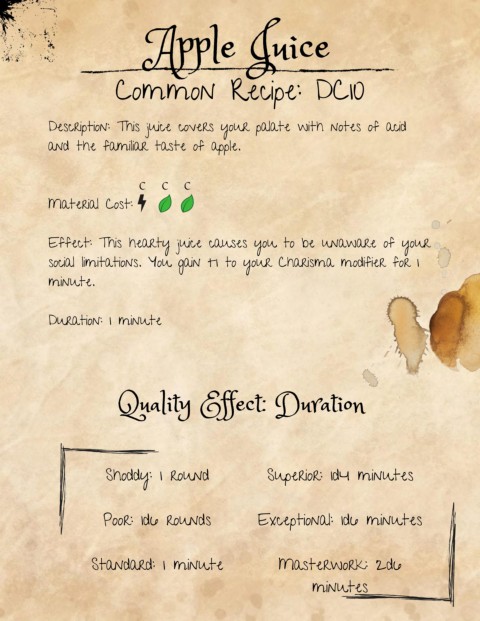 Apple Juice
Common Recipe: DC10
Description: This juice covers your palate with notes of acid
and the familiar taste of apple.
C C C
Material Cost:
Effect: This hearty juice causes you to be unaware of your
social limitations. You gain +1 to your Charisma modifier for 1
minute.
Duration: 1 minute
Quality Effect: Duration
Shoddy: 1 Round
Superior: 1d4 minutes
Poor: 1d6 Rounds
Exceptional: 1d6 minutes
Standard: 1 minute
Masterwork: 2d6
minutes